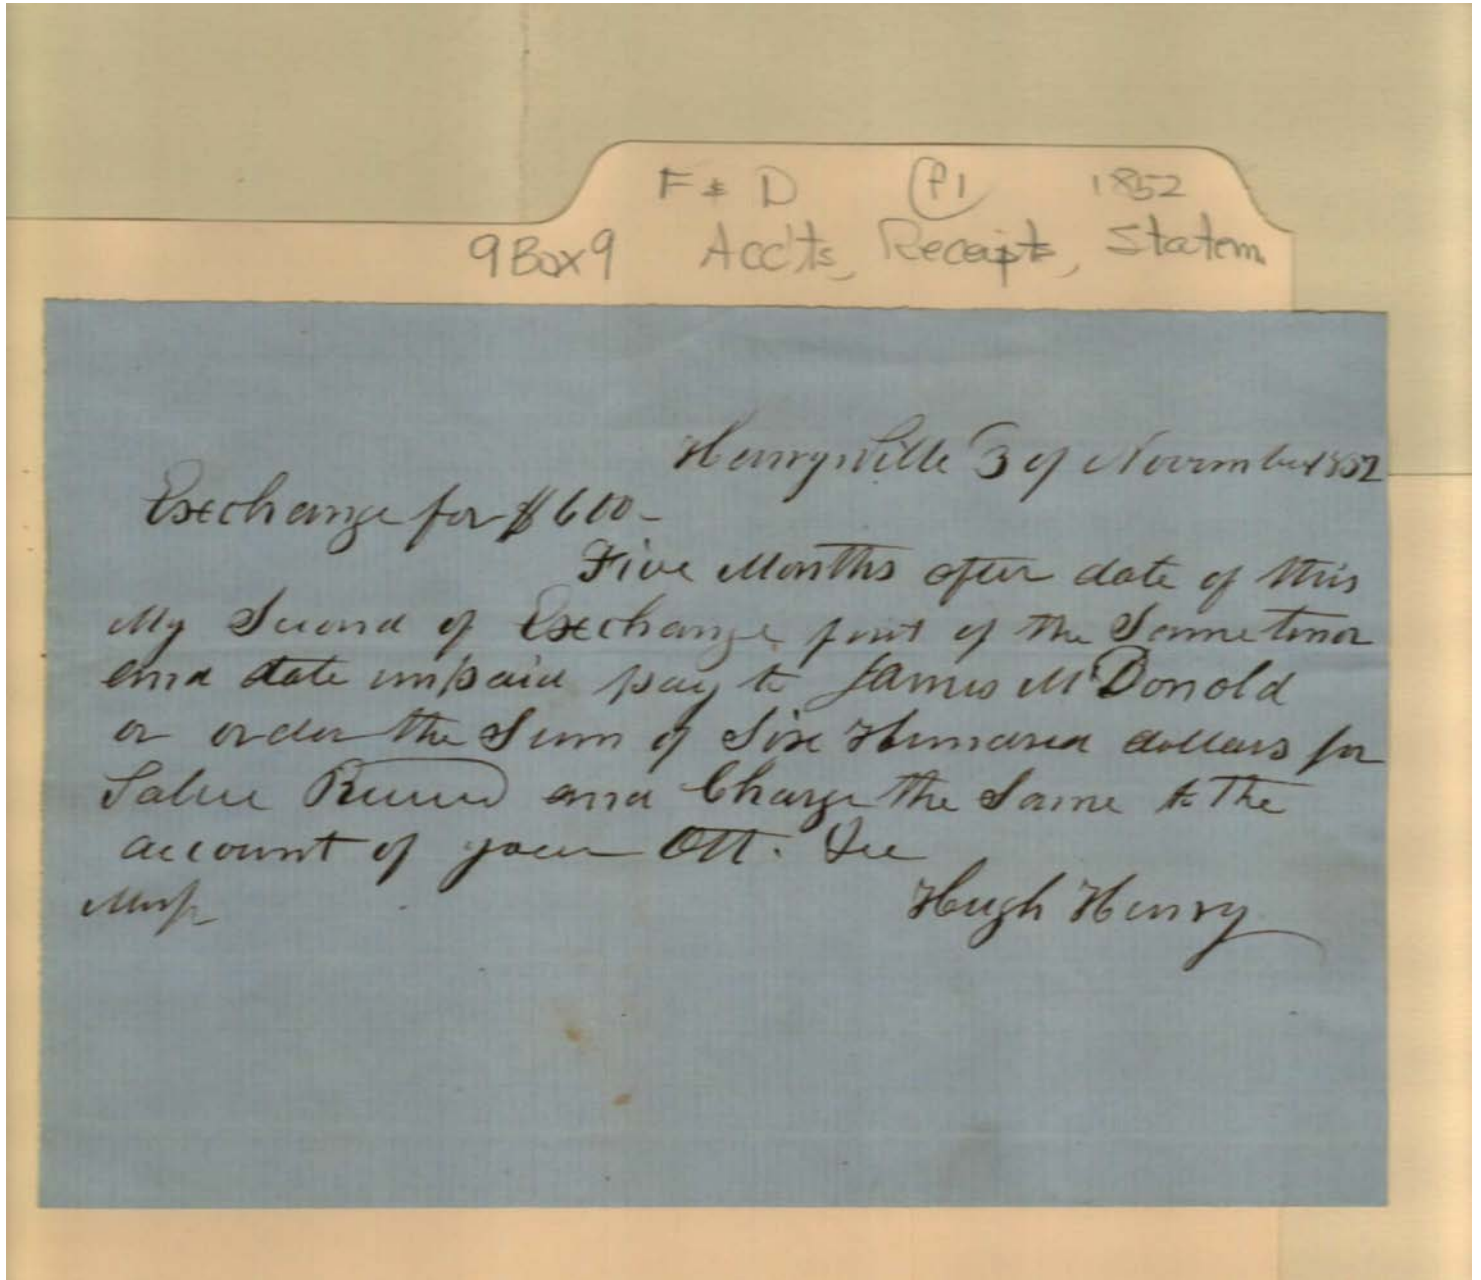 F & D P1 1852
9 Box 9 Acc'ts, Receipts, Statem
Henryville 3 of November 1852
Exchange for $600-
Five Months after date of this
My Second of Exchange first of the Same tenor
and date unpaid pay to James McDonold
or order the Sum of Six Hundred dollars for
Value Received and Charge the Same to the
account of your Obt. Ser
Hugh Henry